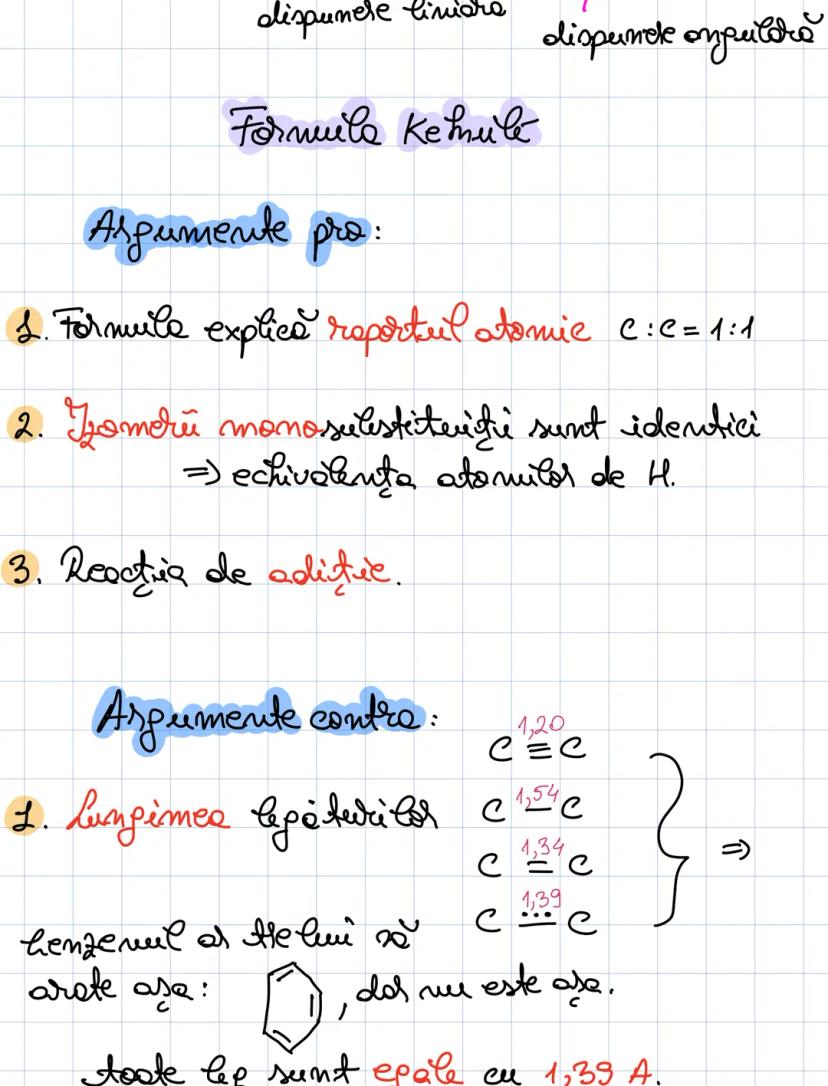 dispunere liniara
dispunere angulară
Formula Kekulé
Argumente pro:
1. Formula explică raportul atomic C:C = 1:1
2. Izomerii monosubstituiți sunt identici
=> echivalența atomilor de H.
3. Reacția de adiție.
Argumente contra:
1,20
C ≡ C
1. Lungimea legăturilor
1,54
C – C
1,34
C = C
=>
1,39
C ... C
benzenul ar trebui să
arate așa: , dar nu este așa.
toate leg sunt egale cu 1,39 A.